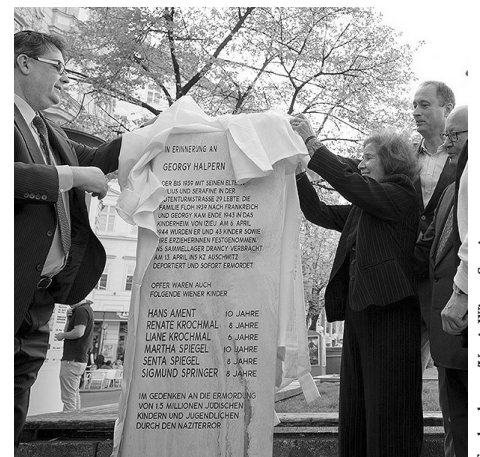 IN ERINNERUNG AN
GEORGY HALPERN
DER BIS 1939 MIT SEINEN
UND SERAFINE IN DER
29 LEBTE. DIE
FAMILIE FLOH 1939 NACH FRANKREICH
UND GEORGY KAM ENDE 1943 IN DAS
KINDERHEIM VON IZIEU. AM 6. APRIL
1944 WURDEN ER UND 43 KINDER SOWIE
IHRE ERZIEHERINNEN FESTGENOMMEN,
INS SAMMELLAGER DRANCY VERBRACHT,
AM 13. APRIL INS KZ AUSCHWITZ
DEPORTIERT UND SOFORT ERMORDET.
OPFER WAREN AUCH
FOLGENDE WIENER KINDER
HANS AMENT 10 JAHRE
RENATE KROCHMAL 8 JAHRE
LIANE KROCHMAL 6 JAHRE
MARTHA SPIEGEL 10 JAHRE
SENTA SPIEGEL 8 JAHRE
SIGMUND SPRINGER 8 JAHRE
IM GEDENKEN AN DIE ERMORDUNG
VON 1.5 MILLIONEN JÜDISCHEN
KINDERN UND JUGENDLICHEN
DURCH DEN NAZITERROR